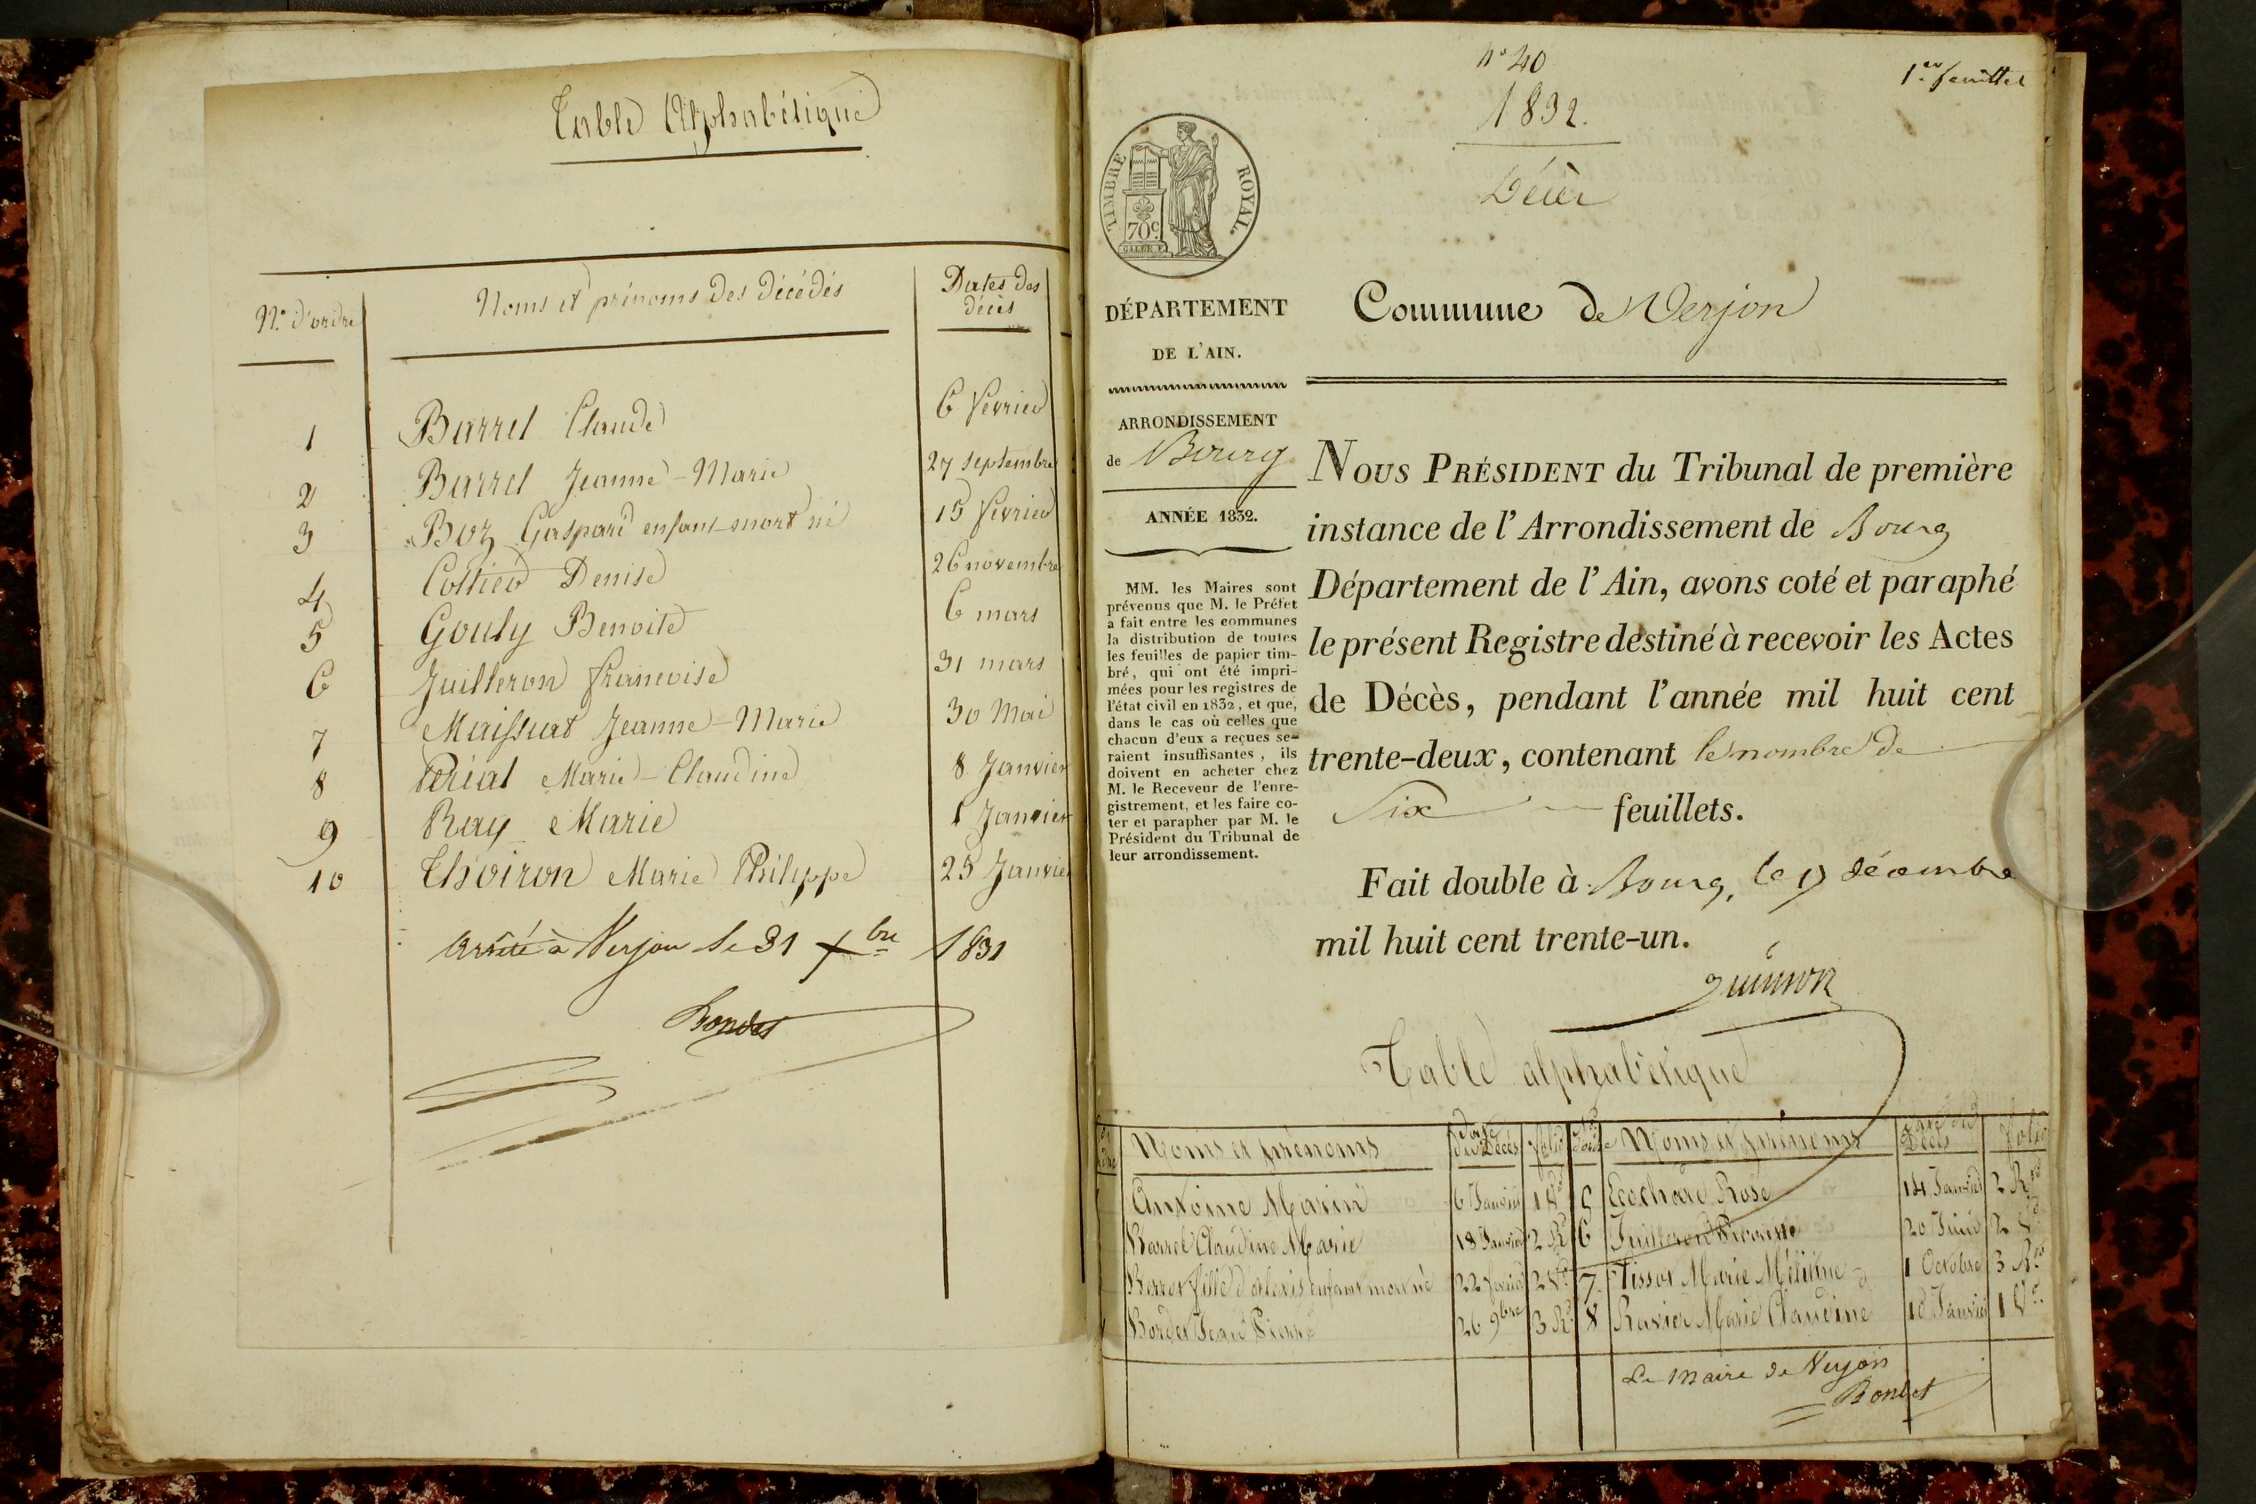 Table Alphabétique
N.° d'ordre Noms et prénoms des décédés Dates des décès
1 Barrel Claude 6 février
2 Barrel Jeanne-Marie 27 septembre
3 Boz Gaspard enfant mort né 15 février
4 Collied Denise 26 novembre
5 Gouly Benoite 6 mars
6 Juilleron françoise 31 mars
7 Maissiat Jeanne-Marie 30 Mai
8 Périat Marie-Claudine 8 Janvier
9 Ray Marie 1 Janvier
10 Thoiron Marie Philippe 25 Janvier
arrêté à Verjon le 31 Xbre 1831
Bondet
n° 40
1er feuillet
1832.
Décès
TIMBRE ROYAL.
70c.
DÉPARTEMENT
DE L'AIN.
Commune de Verjon
ARRONDISSEMENT
de Bourg
ANNÉE 1832.
MM. les Maires sont
prévenus que M. le Préfet
a fait entre les communes
la distribution de toutes
les feuilles de papier tim-
bré, qui ont été impri-
mées pour les registres de
l'état civil en 1832, et que,
dans le cas où celles que
chacun d'eux a reçues se-
raient insuffisantes, ils
doivent en acheter chez
M. le Receveur de l'enre-
gistrement, et les faire co-
ter et parapher par M. le
Président du Tribunal de
leur arrondissement.
NOUS PRÉSIDENT du Tribunal de première
instance de l'Arrondissement de Bourg
Département de l'Ain, avons coté et paraphé
le présent Registre destiné à recevoir les Actes
de Décès, pendant l'année mil huit cent
trente-deux, contenant le nombre de
Six feuillets.
Fait double à Bourg, le 9 décembre
mil huit cent trente-un.
Table alphabétique
Noms et prénoms du Décès folio Noms et prénoms Décès folio
Antoine Marin 6 Janvier 1 Vo 5 Ecochard Rose 14 Janvier 2 Ro
Barrel Claudine Marie 18 Janvier 2 Ro 6 Juilleron 20 Juin 2 Vo
fille d'alexis enfant mort né 22 février 2 Vo 7 Tissot Marie 1 Octobre 3 Ro
Bordet Jean Pierre 26 9bre 3 Ro 8 Ravier Marie Claudine 10 Janvier 1 Vo
Le Maire de Verjon
Bondet